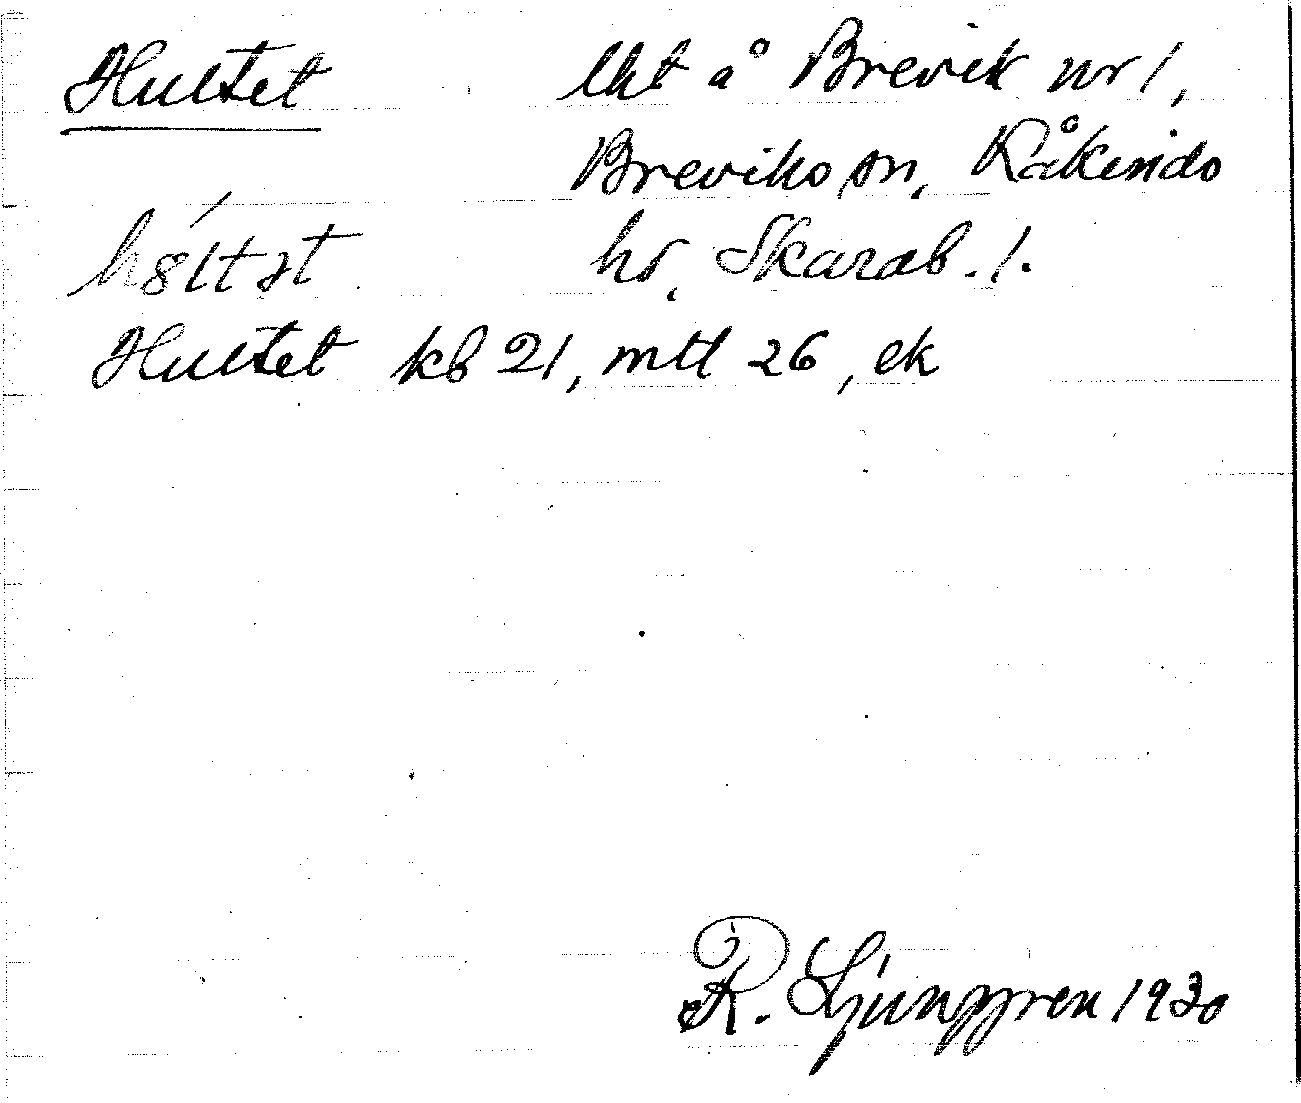 Hultet lht å Brevik nr 1,
Breviks sn, Kåkinds
hd, Skarab. l.
Hultet kb 21, mtl 26, ek
R. Ljunggren 1930